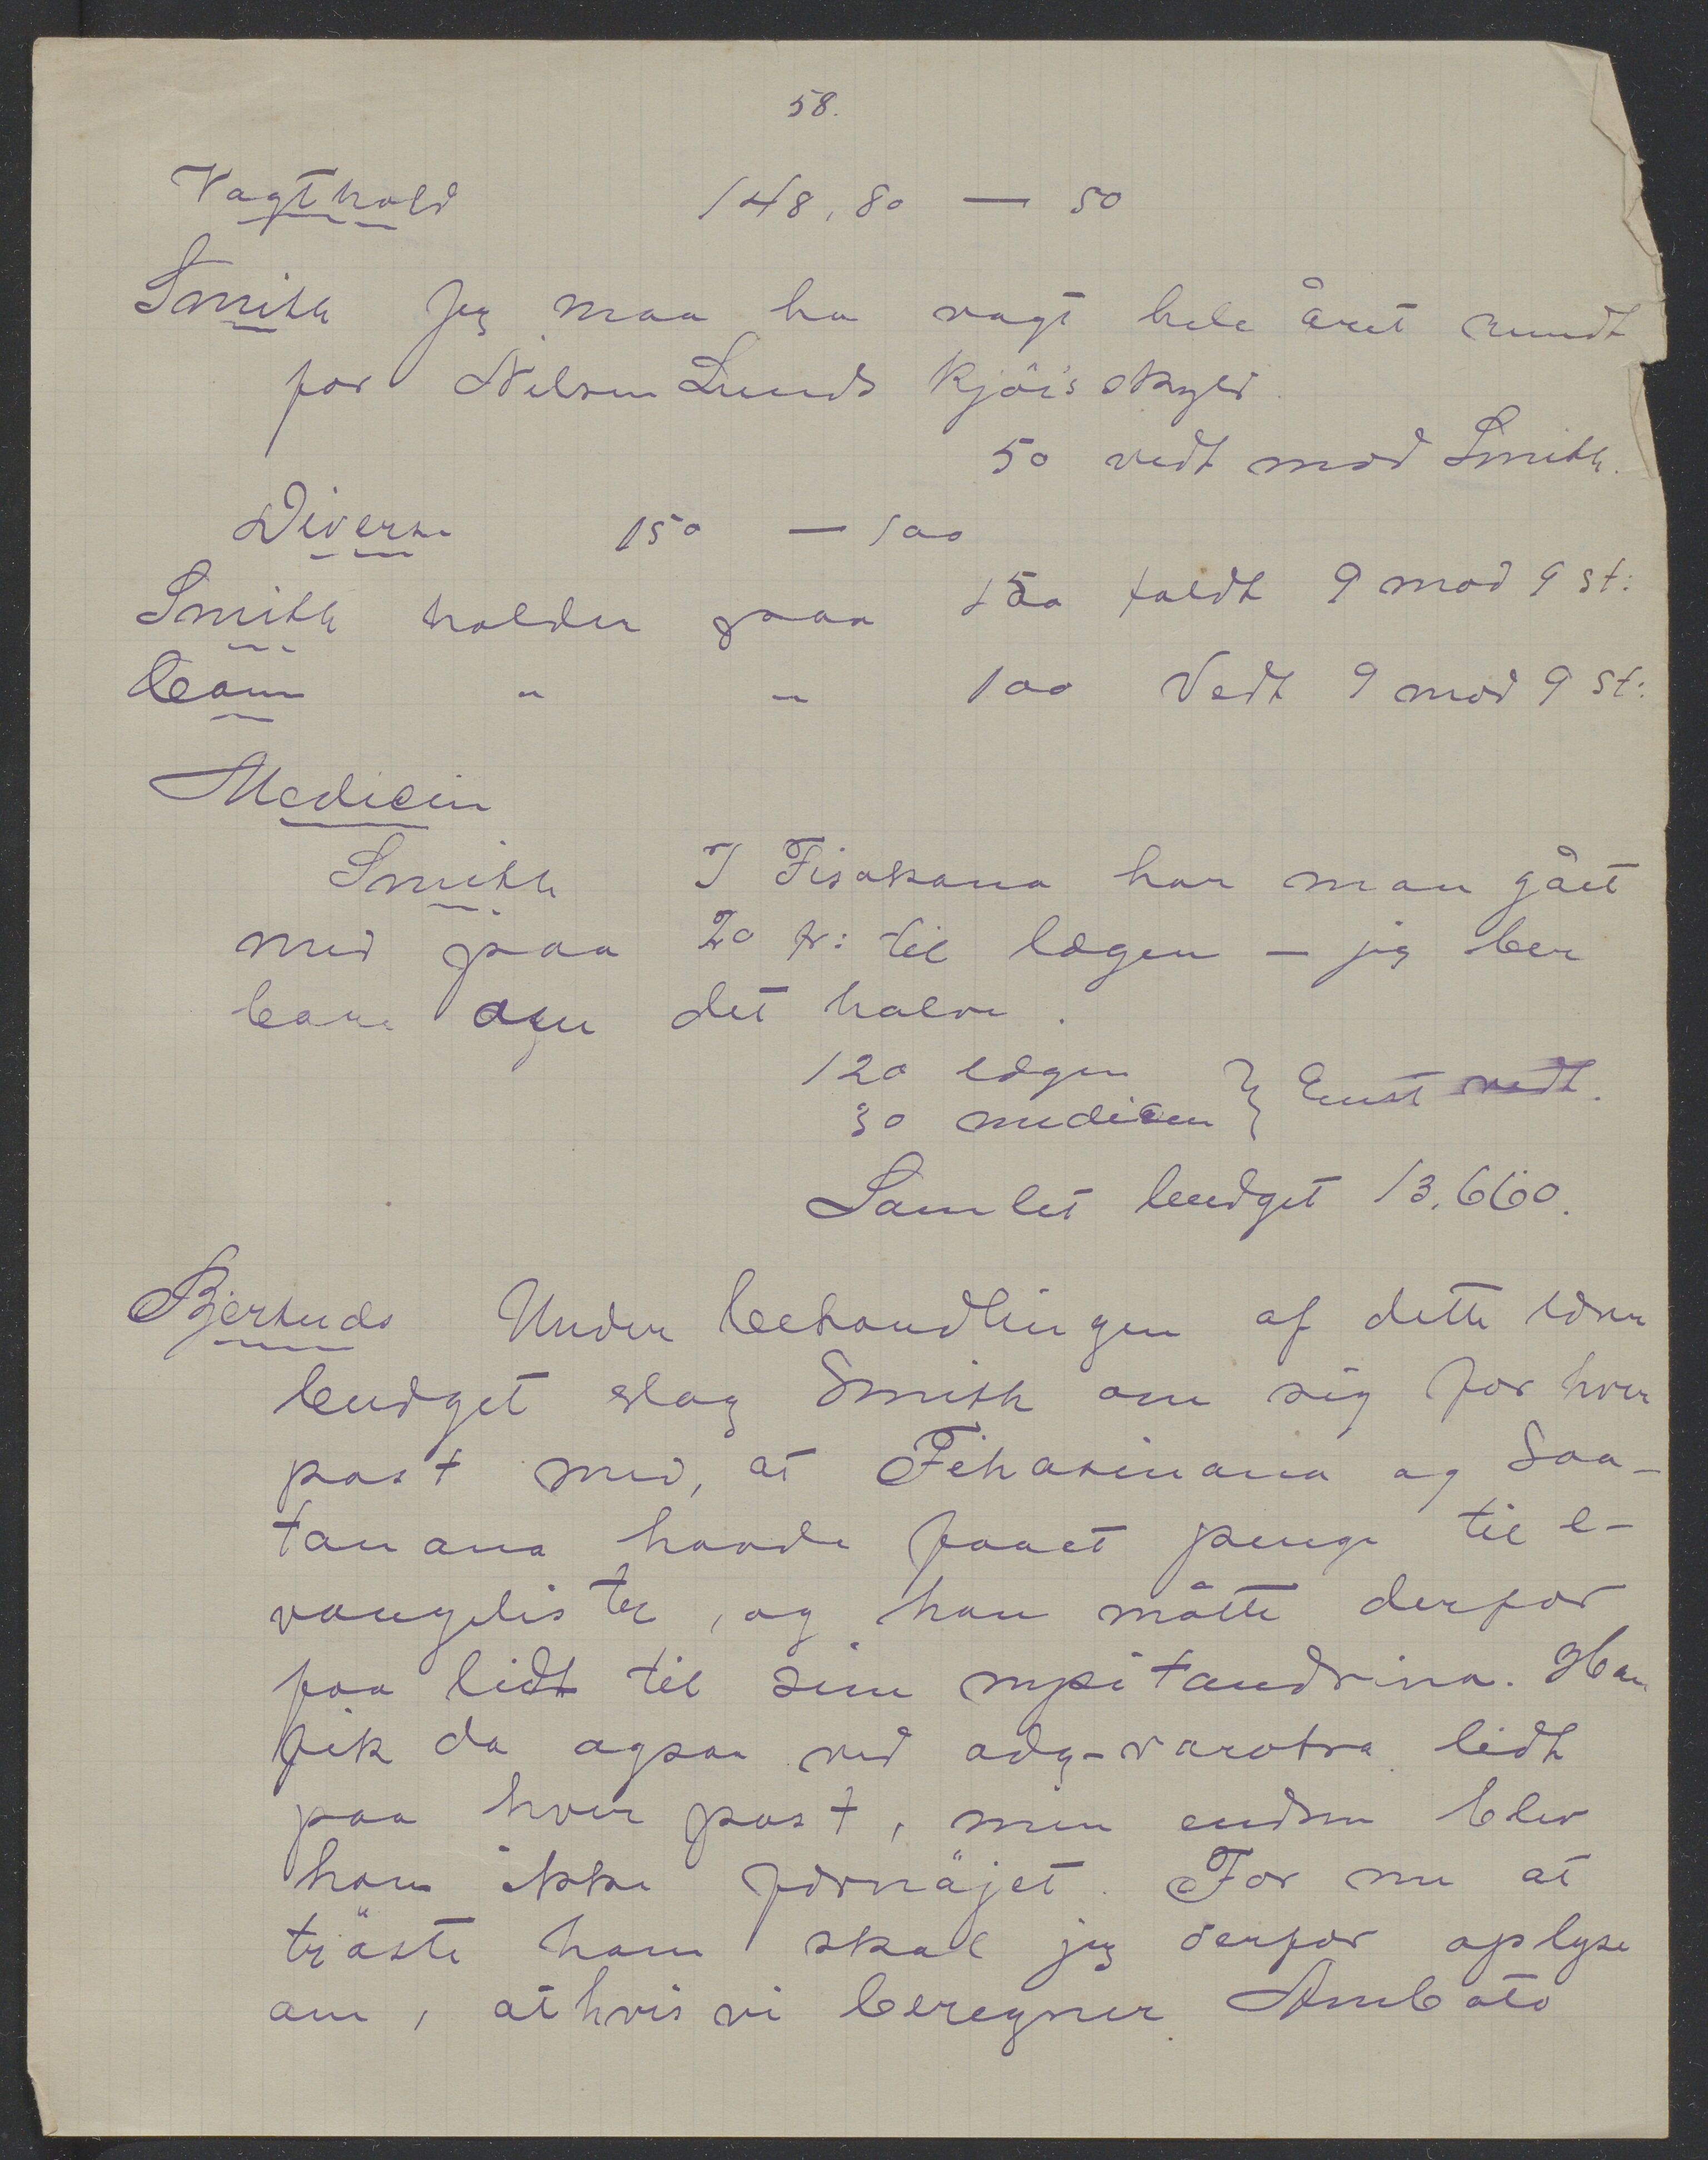 58.
Vagthold 148,80 — 50
Smith Jeg maa ha vagt hele året rundt
for Nilsen Lunds kjöis skyld.
50 vedt mod Smith.
Diverse 150 — 100
Smith holder paa 150 faldt 9 mod 9 st:
Com " " 100 Vedt 9 mod 9 st:
Medicin
Smith I Fisakana har man gået
med paa 20 fr: til lægen — jeg ber
bare om det halve.
120 lægen } Enst vedt.
30 medicin
Samlet budget 13,660.
Bjertnæs Under behandlingen af dette
budget slog Smith om sig for hver
post med, at Fihasinana og Soa-
tanana havde faaet penge til e-
vangelister, og han måtte derfor
faa lidt til sine mpitandrina. Han
fik da ogsaa ved ady-varotra lidt
paa hver post, men endnu blev
han ikke fornöjet. For nu at
tröste ham skal jeg derfor oplyse
om, at hvis vi beregner Ambato